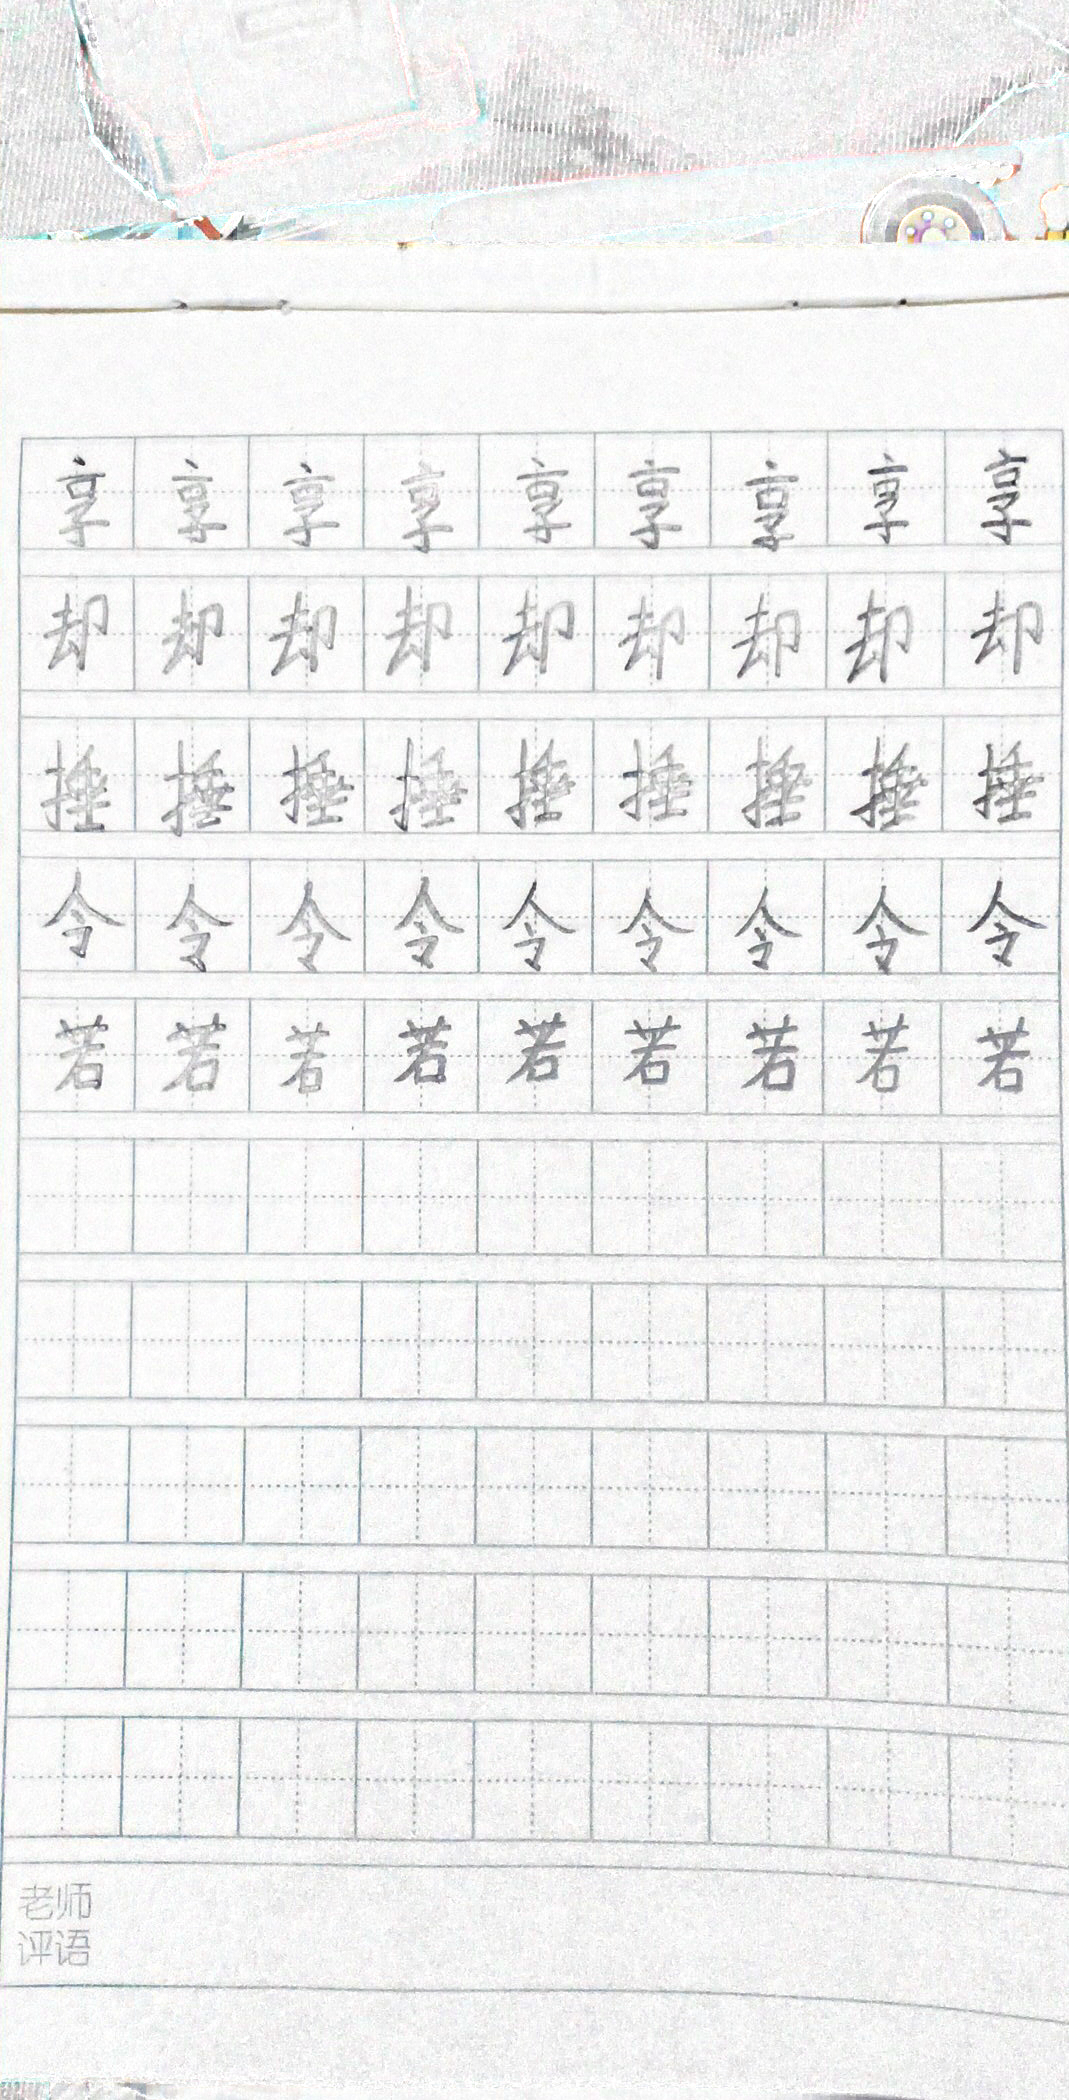 享享享享享享享享享
却却却却却却却却却
捶捶捶捶捶捶捶捶捶
令令令令令令令令令
若若若若若若若若若
老师
评语